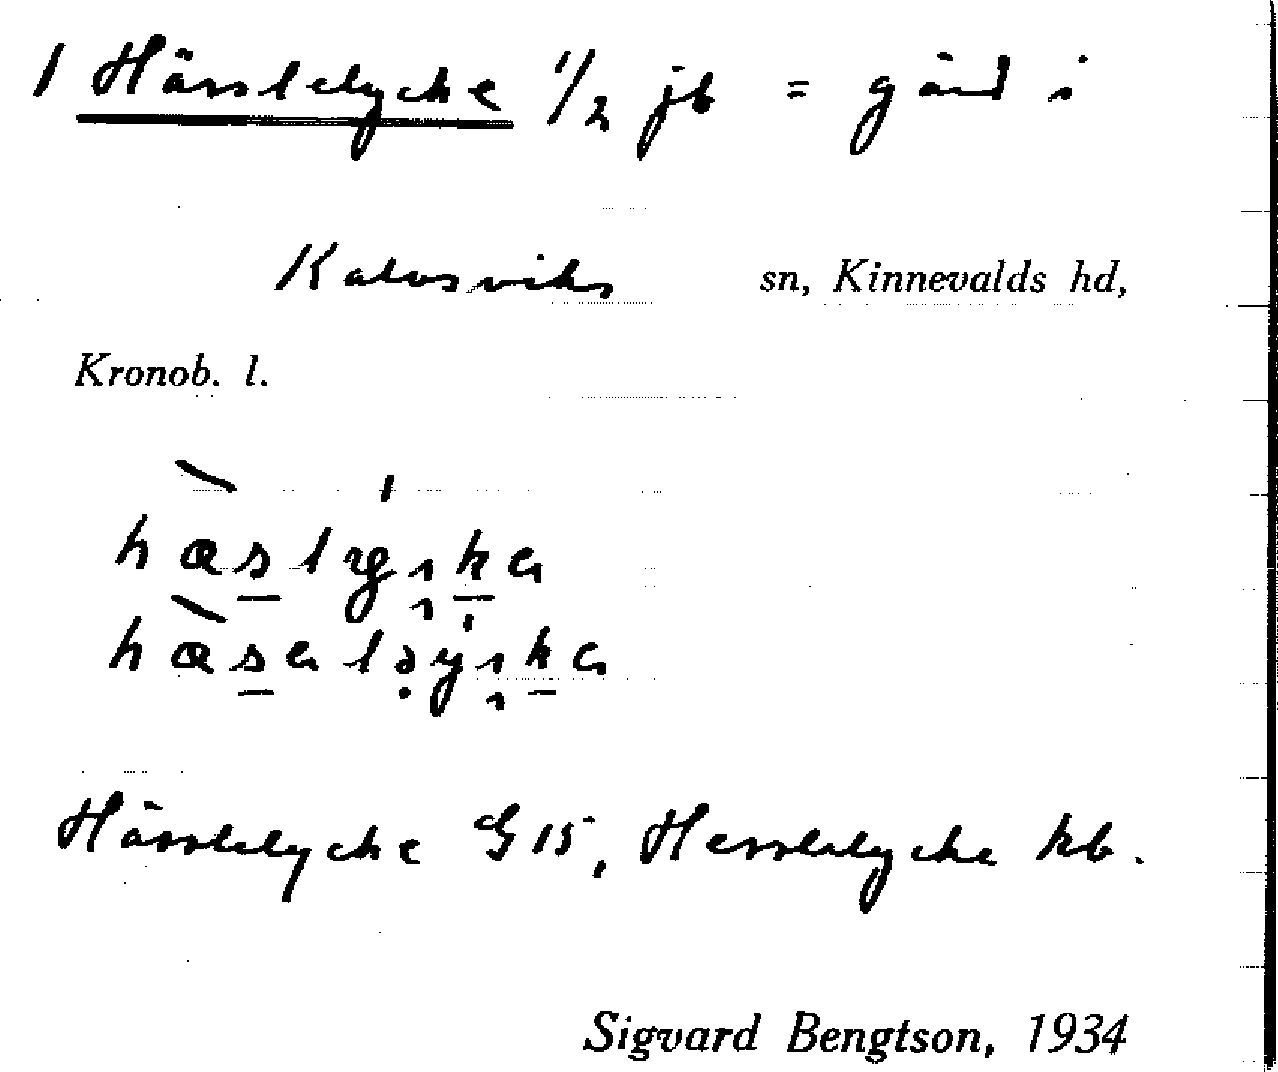 1 Hässlelycke 1/2 jb = gård i
Kalvsviks sn, Kinnevalds hd,
Kronob. l.
Hässlelycke G 15, Hesslelycke kb.
Sigvard Bengtson, 1934